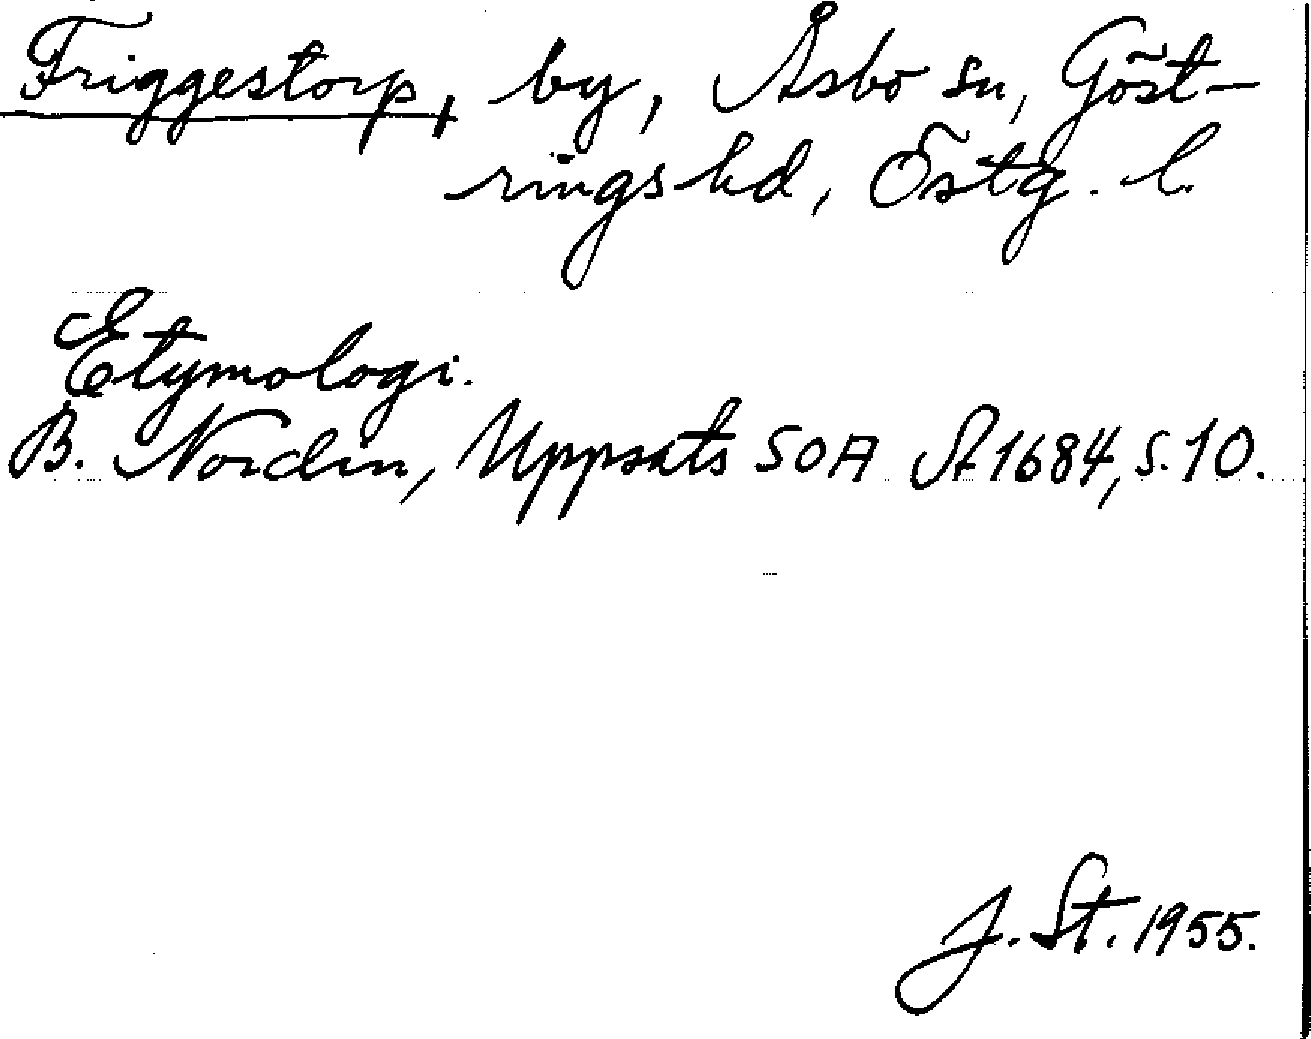 Friggestorp, by, Åsbo sn, Göst-
rings hd, Östg. l.
Etymologi.
B. Nordén, Uppsats SOA St 1684, s. 10.
J. St. 1955.